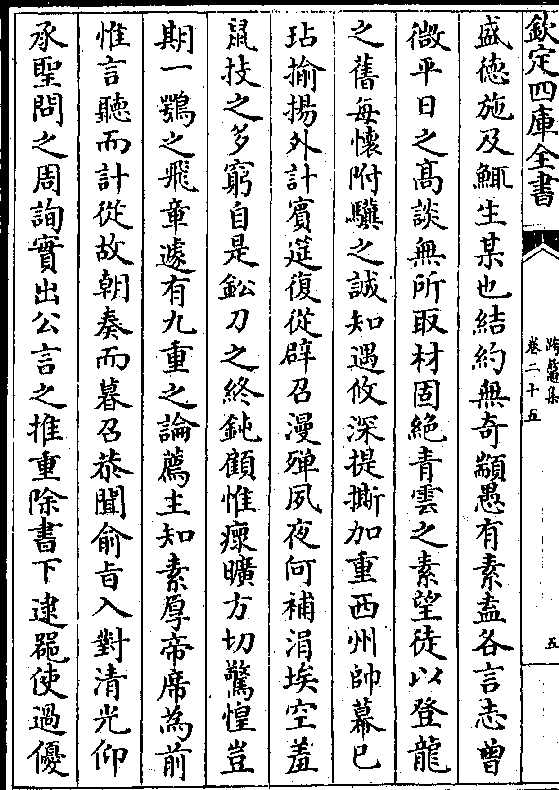 欽定四庫全書
跨鼇集
卷二十五
五
盛德施及鯫生某也結約無奇顓愚有素盍各言志曽
微平日之髙談無所取材固絶青雲之素望徒以登龍
之舊每懐附驥之誠知遇攸深提撕加重西州帥幕已
玷揄揚外計賓筵復從辟召漫殫夙夜何補涓埃空羞
鼠技之多窮自是鈆刀之終鈍顧惟瘝曠方切驚惶豈
期一鶚之飛章遽有九重之論薦主知素厚帝席為前
惟言聽而計從故朝奏而暮召恭聞俞㫖入對清光仰
承聖問之周詢實出公言之推重除書下逮罷使過優